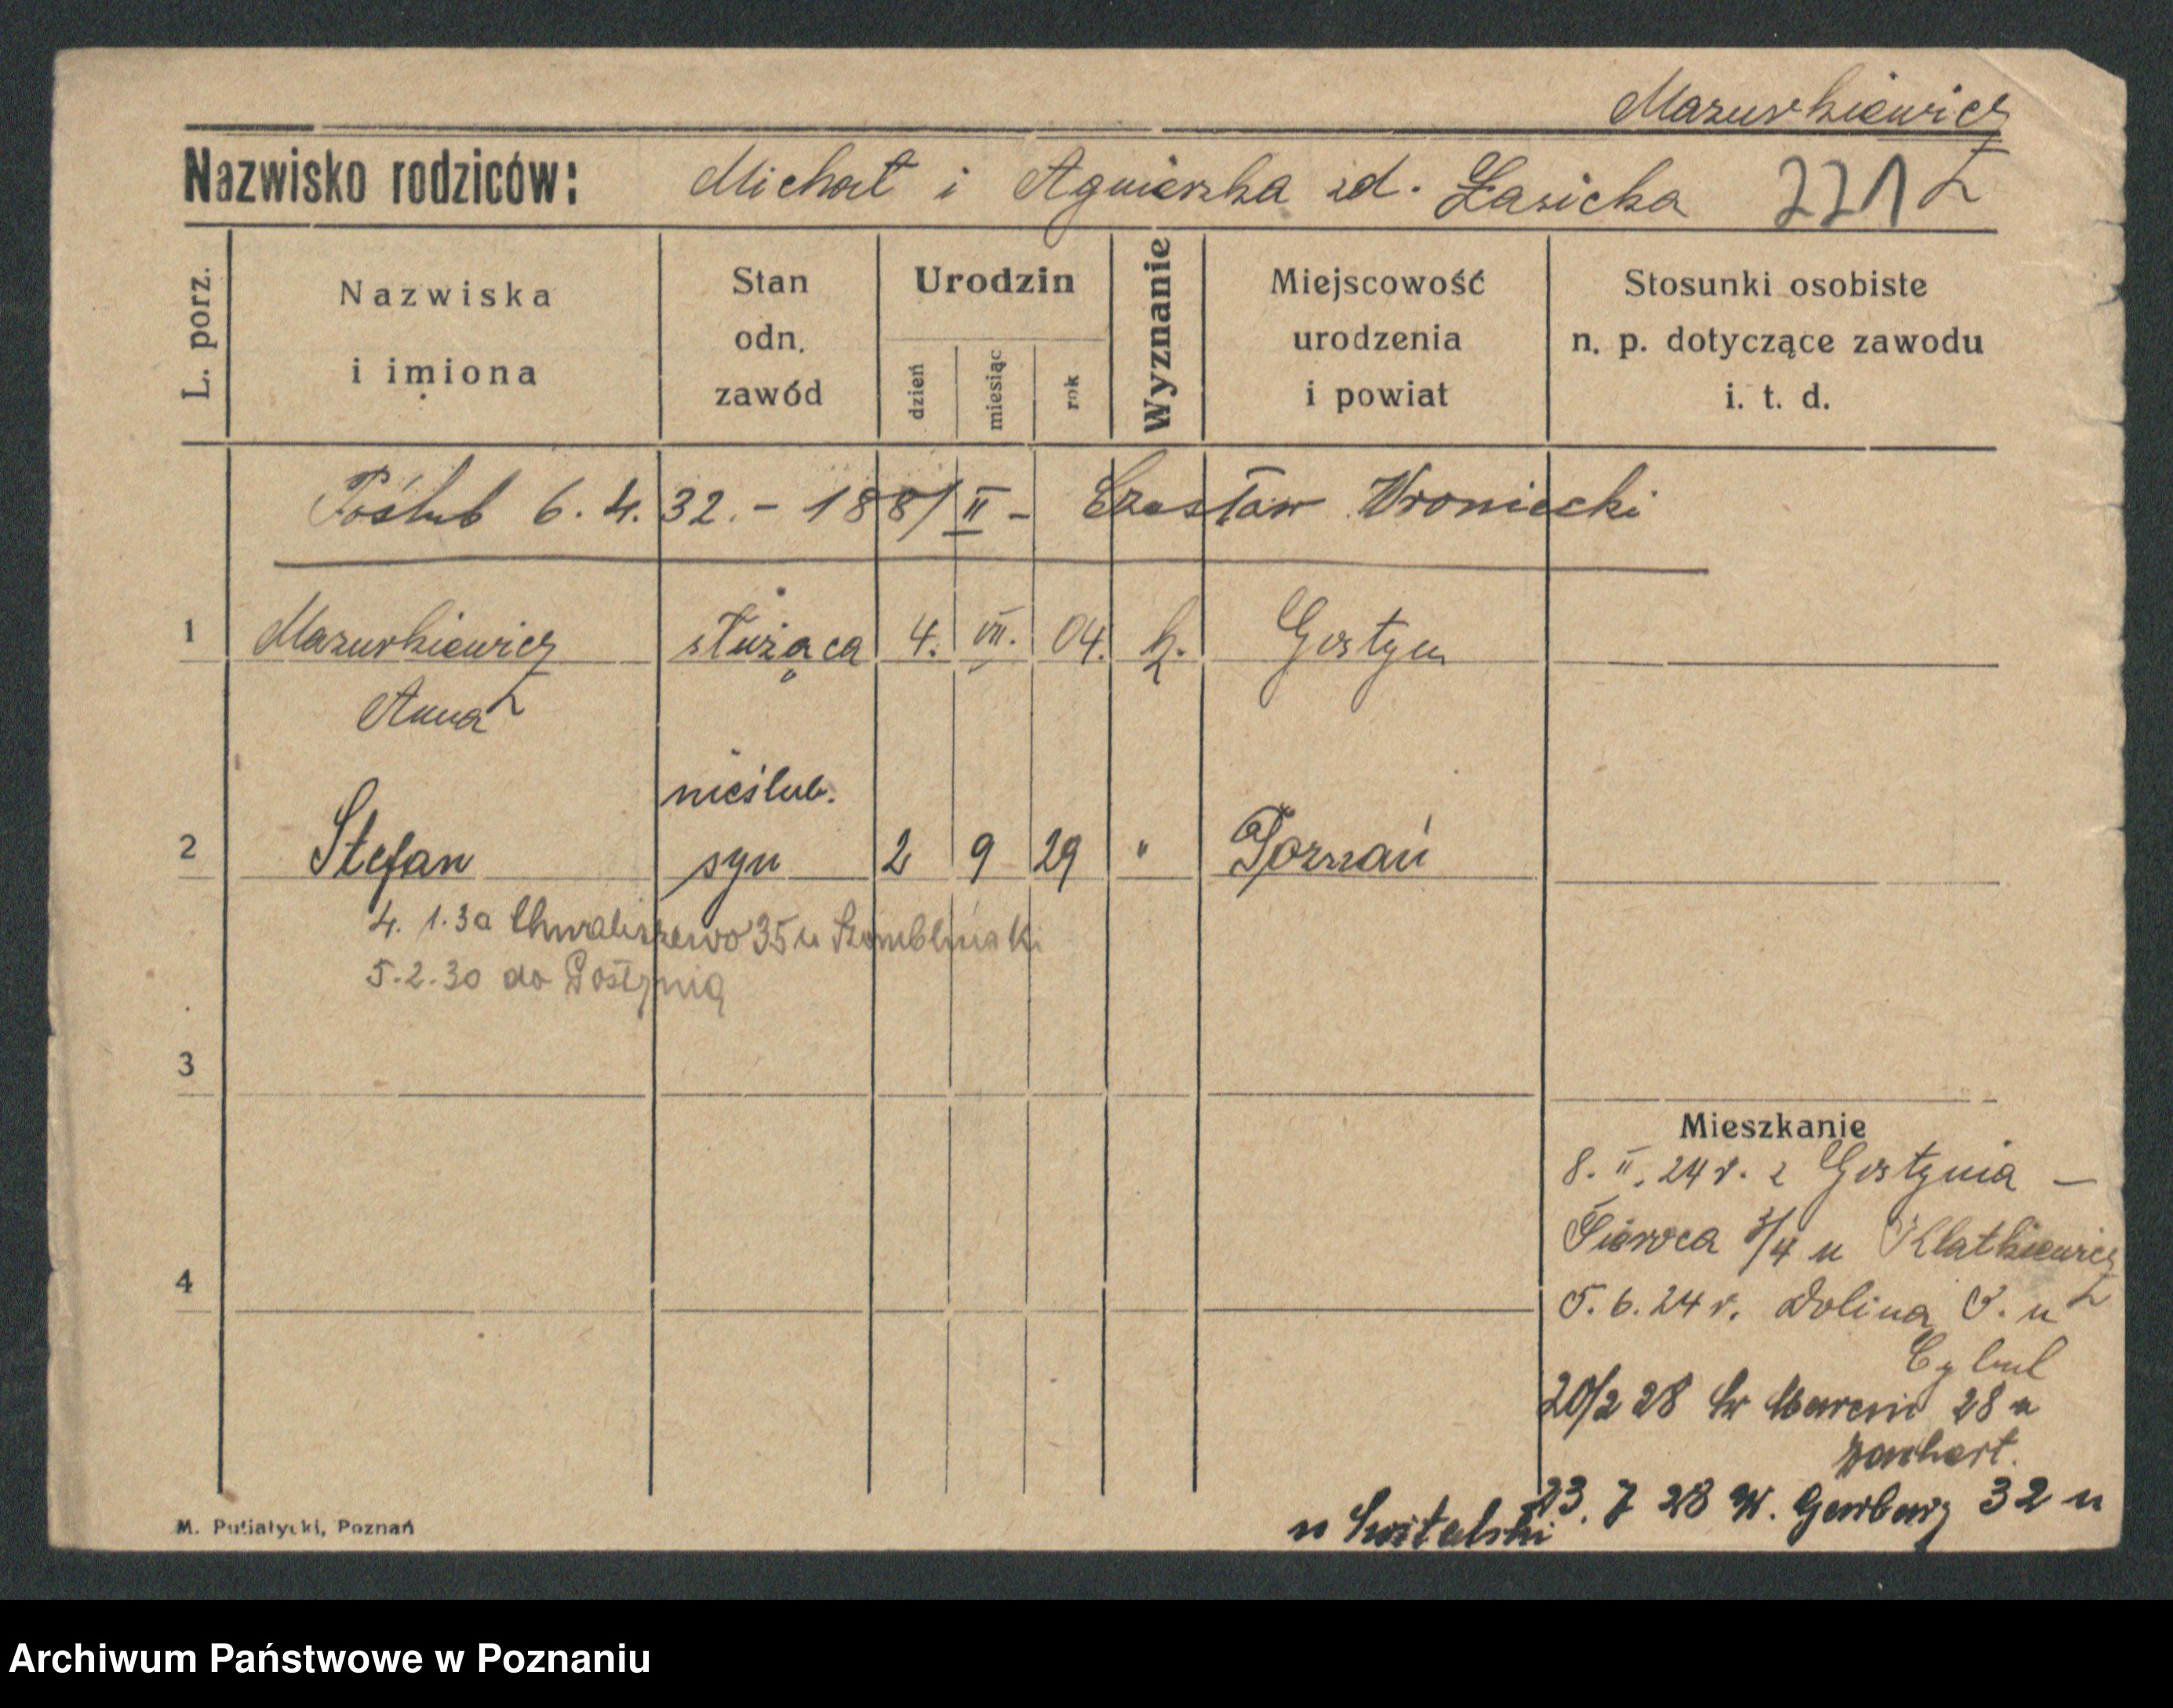 Mazurkiewicz
Nazwisko rodziców: Michał i Agnieszka zd. Łasicka 221
L. porz.
Nazwiska i imiona
Stan odn. zawód
Urodzin
dzień
miesiąc
rok
Wyznanie
Miejscowość urodzenia i powiat
Stosunki osobiste n. p. dotyczące zawodu i. t. d.
Poślub 6.4.32. - 188/II - Czesław Wroniecki
1 Mazurkiewicz służąca 4. VII. 04. k. Gostyn
Anna
nieślub.
2 Stefan syn 2 9 29 " Poznań
4. 1.30 Chwaliszewo 35 u
5.2.30 do Gostynia
3
Mieszkanie
8. II. 24 r. z Gostynia —
u Klatkiewicz
4
5. 6. 24 r. Dolina u
Cybul
20/2 28 Św Marcin 28 u
23. 7 28 W. Garbary 32 u
u Świtalski
M. Putiatycki, Poznań
Archiwum Państwowe w Poznaniu